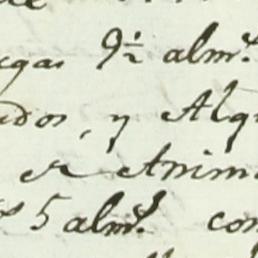 egas 9½ alms
ados, y Alg
er Anim
5 alms. con